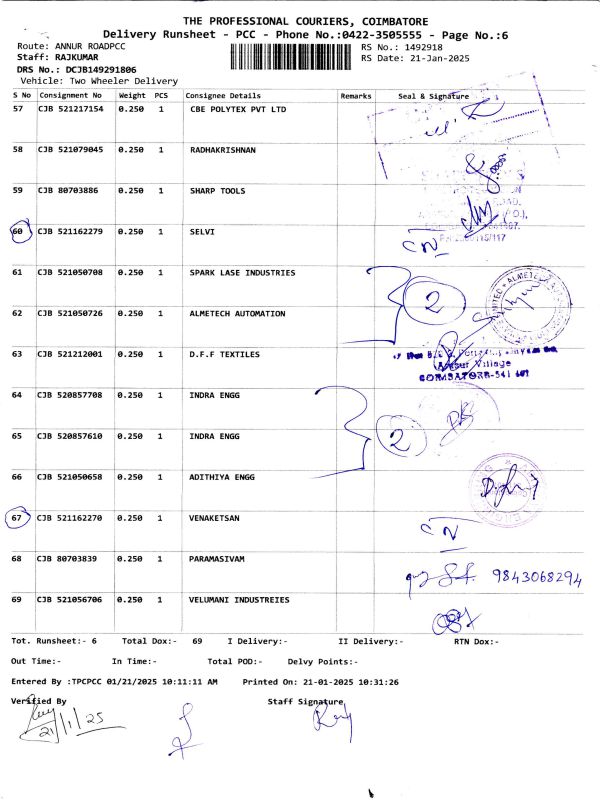 THE PROFESSIONAL COURIERS, COIMBATORE
Delivery Runsheet - PCC - Phone No.:0422-3505555 - Page No.:6
Route: ANNUR ROADPCC RS No.: 1492918
Staff: RAJKUMAR RS Date: 21-Jan-2025
DRS No.: DCJB149291806
Vehicle: Two Wheeler Delivery
S No Consignment No Weight PCS Consignee Details Remarks Seal & Signature
57 CJB 521217154 0.250 1 CBE POLYTEX PVT LTD
58 CJB 521079045 0.250 1 RADHAKRISHNAN
59 CJB 80703886 0.250 1 SHARP TOOLS
60 CJB 521162279 0.250 1 SELVI CN
61 CJB 521050708 0.250 1 SPARK LASE INDUSTRIES
2
62 CJB 521050726 0.250 1 ALMETECH AUTOMATION
63 CJB 521212001 0.250 1 D.F.F TEXTILES
Village
64 CJB 520857708 0.250 1 INDRA ENGG
2
65 CJB 520857610 0.250 1 INDRA ENGG
66 CJB 521050658 0.250 1 ADITHIYA ENGG
67 CJB 521162270 0.250 1 VENAKETSAN CN
68 CJB 80703839 0.250 1 PARAMASIVAM 9843068294
69 CJB 521056706 0.250 1 VELUMANI INDUSTREIES
Tot. Runsheet:- 6 Total Dox:- 69 I Delivery:- II Delivery:- RTN Dox:-
Out Time:- In Time:- Total POD:- Delvy Points:-
Entered By :TPCPCC 01/21/2025 10:11:11 AM Printed On: 21-01-2025 10:31:26
Verified By Staff Signature
21/1/25